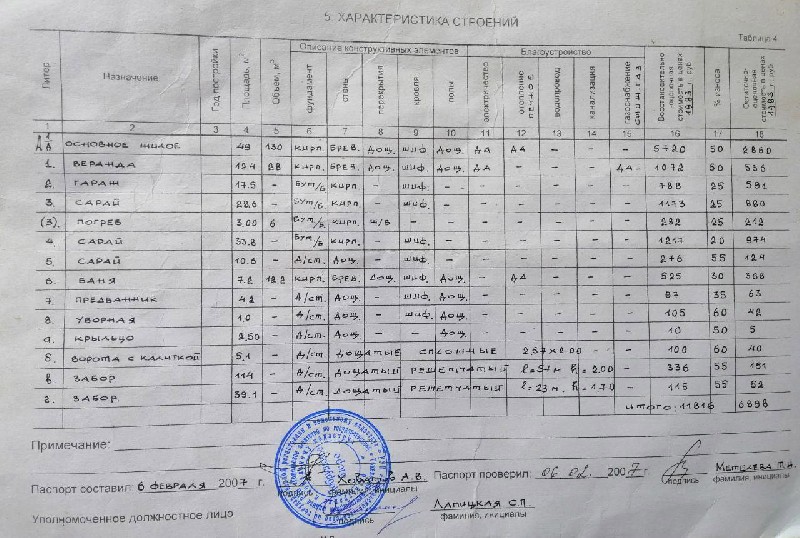 5. ХАРАКТЕРИСТИКА СТРОЕНИЙ
Таблица 4
Литер Назначение Год постройки Площадь, м² Объем, м³ Описание конструктивных элементов Благоустройство Восстановительно стоимость в ценах 1983 г. руб. % износа стоимость в ценах 1983 г. руб.
фундамент стены перекрытия кровля полы электричество отопление водопровод канализация газоснабжение
1 2 3 4 5 6 7 8 9 10 11 12 13 14 15 16 17 18
ОСНОВНОЕ ЖИЛОЕ 49 130 КИРП. БРЕВ. ДОЩ. ШИФ. ДОЩ. ДА ДА - - - 5720 50 2860
1. ВЕРАНДА 28 КИРП. БРЕВ. ДОЩ. ШИФ. ДОЩ. ДА - - ДА 1072 50 536
2. ГАРАЖ 17.5 - БУТ/Б КИРП. - ШИФ. - - - - - - 788 25 591
3. САРАЙ - БУТ/Б КИРП. - ШИФ. - - - - - - 1173 25 880
(3). ПОГРЕБ 3.00 6 БУТ/Б КИРП. Ж/Б - - - - - - - 282 25 212
4. САРАЙ 33.8 - БУТ/Б КИРП. - ШИФ. - - - - - - 1217 20 974
5. САРАЙ 10.6 - Д/СТ. ДОЩ. - ШИФ. - - - - - - 276 55 124
6. БАНЯ 7.2 КИРП. БРЕВ. ДОЩ. ШИФ. ДОЩ. - ДА - - - 525 30 368
7. ПРЕДБАННИК 4.2 - Д/СТ. ДОЩ. - ШИФ. ДОЩ. - - - - - 97 35 63
8. УБОРНАЯ 1.0 - Д/СТ. ДОЩ. - ШИФ. ДОЩ. - - - - - 105 60 42
а. КРЫЛЬЦО 2,50 - Д/СТ. ДОЩ. - - ДОЩ. - - - - - 10 50 5
б. ВОРОТА С КАЛИТКОЙ 5.1 - Д/СТ. ДОЩАТЫЕ СПЛОШНЫЕ 2,57х2.00 - - 100 60 40
в. ЗАБОР 114 - Д/СТ. ДОЩАТЫЙ РЕШЕТЧАТЫЙ l=57м h=2.00 - 336 55 151
г. ЗАБОР 39.1 - Д/СТ. ДОЩАТЫЙ РЕШЕТЧАТЫЙ l=23м. h=1.70 - 115 55 52
ИТОГО: 11816 6898
Примечание:
Паспорт составил: 6 ФЕВРАЛЯ 2007 г. А.В. Паспорт проверил: 06.02. 2007 г.
подпись фамилия, инициалы подпись фамилия, инициалы
Уполномоченное должностное лицо ЛАПИЦКАЯ С.П.
подпись фамилия, инициалы